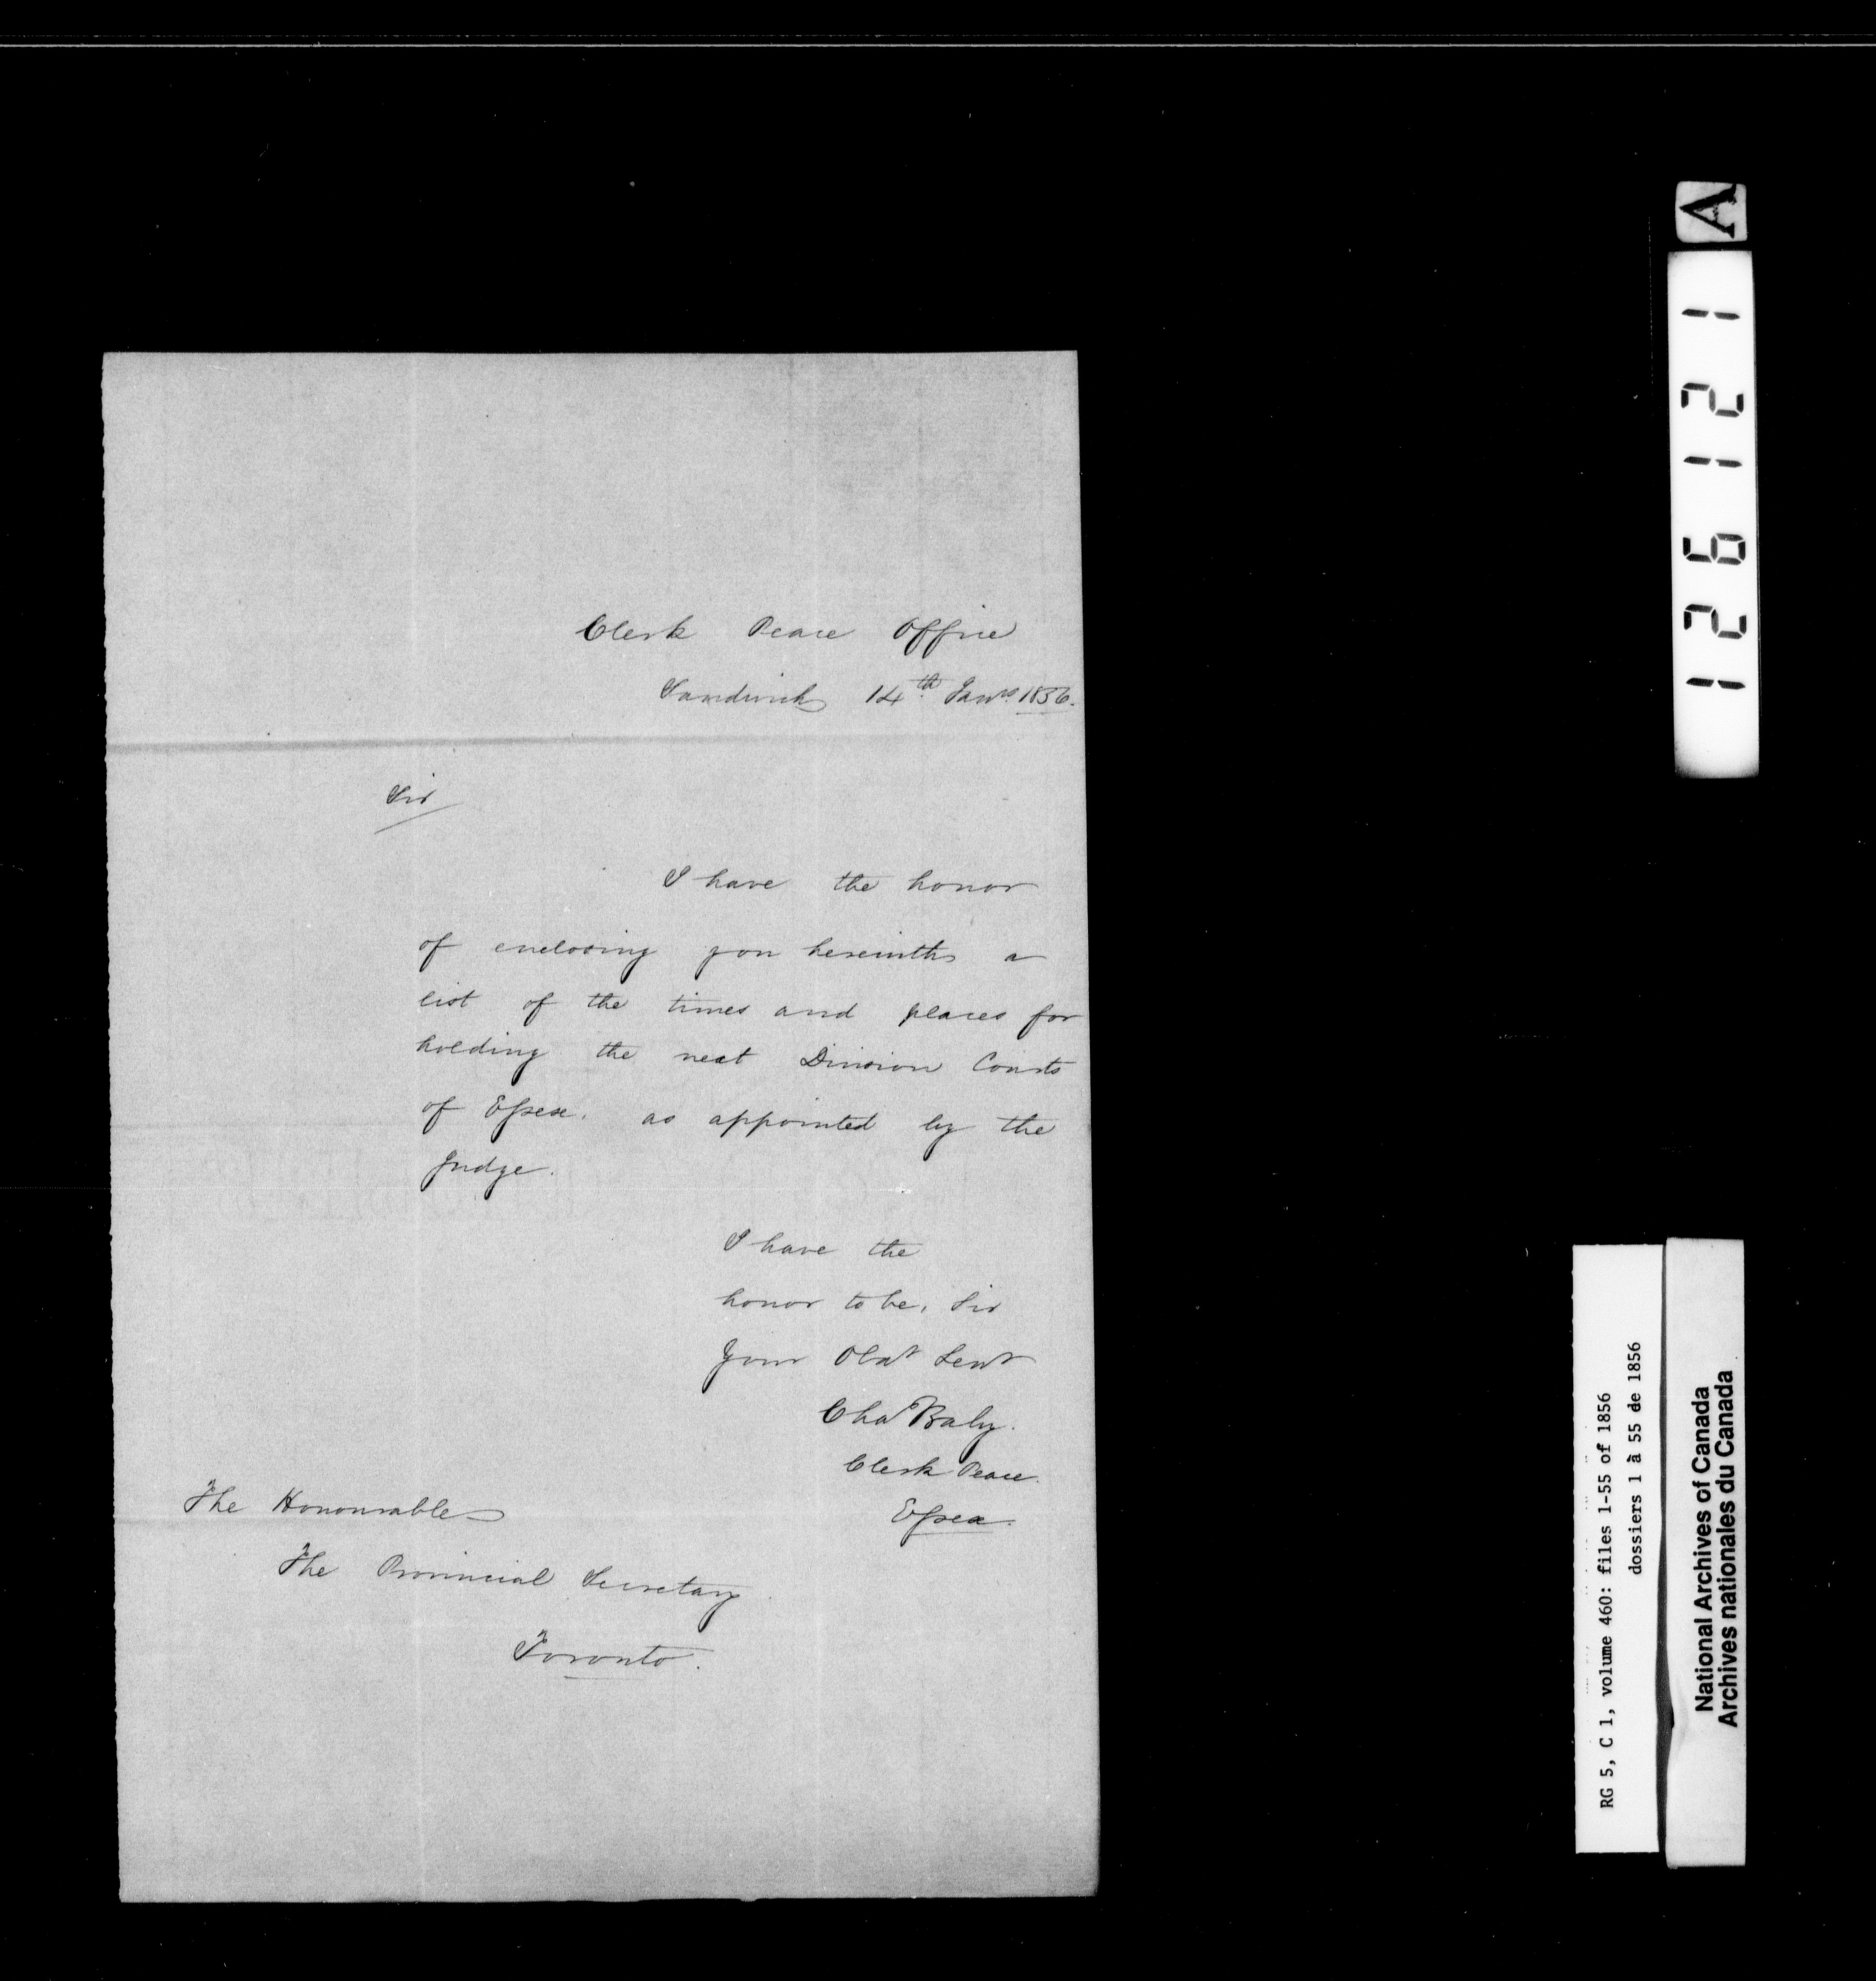 Clerk Peace Office
Sandwich 14th Jany. 1856.
Sir
I have the honor
of enclosing you herewith a
list of the times and places for
holding the next Division Courts
of Essex. as appointed by the
Judge.
I have the
honor to be, Sir
Your Obdt Servt
Chas Baby.
Clerk Peace.
Essex.
The Honourable
The Provincial Secretary
Toronto.
A
126121
RG 5, C 1, volume 460: files 1-55 of 1856
dossiers 1 à 55 de 1856
National Archives of Canada
Archives nationales du Canada